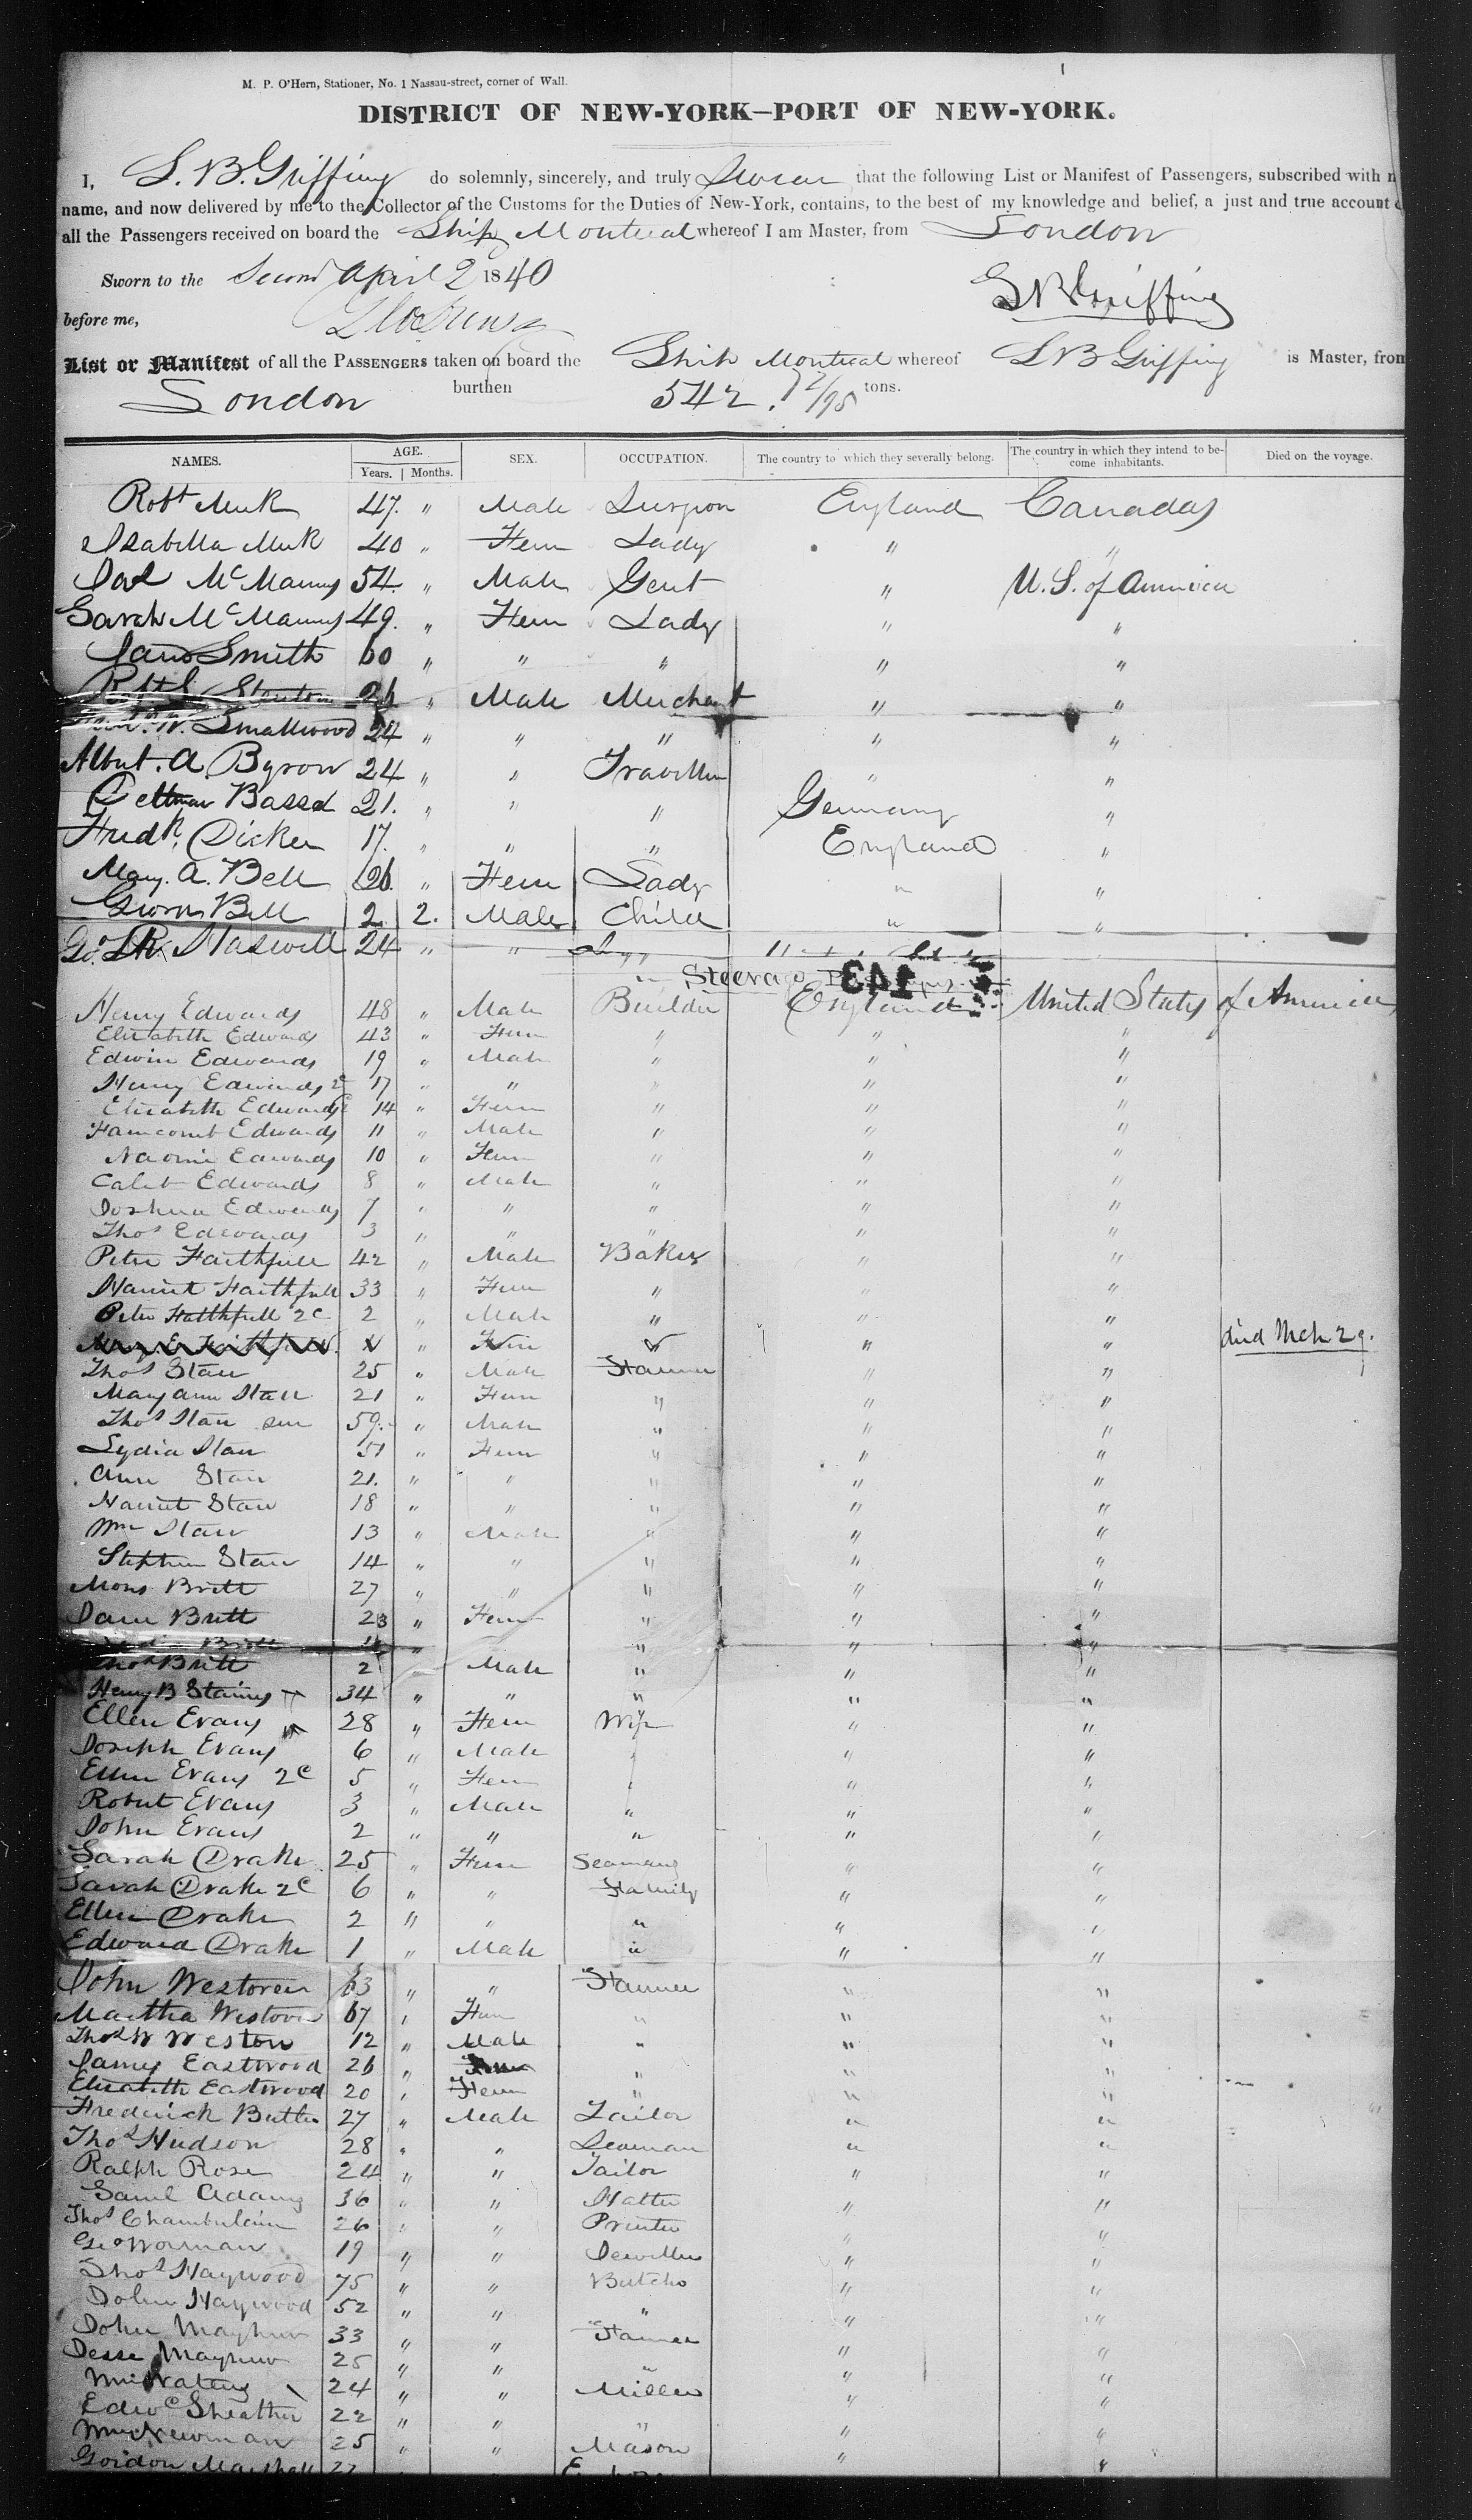 M. P. O'Hern, Stationer, No. 1 Nassau-street, corner of Wall.
DISTRICT OF NEW-YORK—PORT OF NEW-YORK.
I, S. B. Griffing do solemnly, sincerely, and truly Swear that the following List or Manifest of Passengers, subscribed with
name, and now delivered by me to the Collector of the Customs for the Duties of New-York, contains, to the best of my knowledge and belief, a just and true account
all the Passengers received on board the Ship Montreal whereof I am Master, from London
Sworn to the Second April 2 1840
S B Griffing
before me,
List or Manifest of all the PASSENGERS taken on board the Ship Montreal whereof S B Griffing is Master, from
London burthen 542. 72/95 tons.
NAMES. AGE. Years. Months. SEX. OCCUPATION. The country to which they severally belong. The country in which they intend to become inhabitants. Died on the voyage.
Robt 47. " Male Surgeon England Canadas
Isabella 40 " Fem Lady " "
McManus 54. " Male Gent " U. S. of America
Sarah McManus 49. " Fem Lady " "
Jane Smith 60 " " " " "
26 " Male Merchant " "
Smallwood 24 " " " " "
Albert. A. Byron 24 " " Traveller " "
Bassd 21. " " " Germany "
Fredk. Dicker 17. " " " England "
Mary. A. Bell 26. " Fem Lady " "
George Bell 2 2. Male Child " "
24 " "
Steerage
143
Henry Edwards 48 " Male Builder England United States of America
Elizabeth Edwards 43 " Fem " " "
Edwin Edwards 19 " Male " " "
Henry Edwards 2d 17 " " " " "
Elizabeth Edwards 2d 14 " Fem " " "
Edwards 11 " Male " " "
Naomi Edwards 10 " Fem " " "
Caleb Edwards 8 " Male " " "
Joshua Edwards 7 " " " " "
Thos Edwards 3 " " " " "
Peter Faithfull 42 " Male Baker " "
Harriet Faithfull 33 " Fem " " "
Peter Faithfull 2d 2 " Male " " "
" Fem " " " died Mch 29.
Thos Starr 25 " Male Farmer " "
Mary Ann Starr 21 " Fem " " "
Thos Starr sen 59. " Male " " "
Lydia Starr 51 " Fem " " "
Ann Starr 21. " " " " "
Harriet Starr 18 " " " " "
Wm Starr 13 " Male " " "
Stephen Starr 14 " " " " "
Moses Britt 27 " " " " "
Jane Britt 23 " Fem " " "
Britt 4 " " " "
Thos Britt 2 Male " " "
Henry B Staines 34 " " " " "
Ellen Evans 28 " Fem Wife " "
Joseph Evans 6 " Male " " "
Ellen Evans 2d 5 " Fem " " "
Robert Evans 3 " Male " " "
John Evans 2 " " " " "
Sarah Drake 25 " Fem Seamans " "
Sarah Drake 2d 6 " " Family " "
Ellen Drake 2 " " " " "
Edward Drake 1 " Male " " "
John Westover 63 " " Farmer " "
Martha Westover 67 " Fem " " "
Thos W Weston 12 " Male " " "
James Eastwood 26 " " " "
Elizabeth Eastwood 20 " Fem " " "
Frederick Butler 27 " Male Tailor " "
Thos Hudson 28 " " Seaman " "
Ralph Rose 24 " " Tailor " "
Saml Adams 36 " " Hatter " "
Thos Chamberlain 26 " " Printer " "
Geo Worman 19 " " Jeweller " "
Thos Haywood 75 " " Butcher " "
John Haywood 52 " " " " "
John Mayhew 33 " " Farmer " "
Jesse Mayhew 25 " " " " "
Wm Waters 24 " " Miller " "
Edwd Sheather 22 " " " " "
Wm Newman 25 " " Mason " "
Gordon Marshall 27